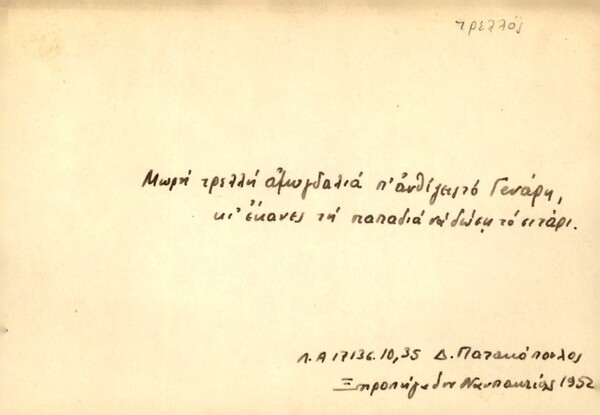 τρελλός
Μωρή τρελλή ἀμυγδαλιά π' ἀνθίζεις τό Γενάρη,
κι' ἔκανες τή παπαδιά νά δώσῃ τό σιτάρι.
Λ.Α 1713γ. 10, 35 Δ. Παπακόπουλος
Ξηροπήγαδον Ναυπακτίας 1952